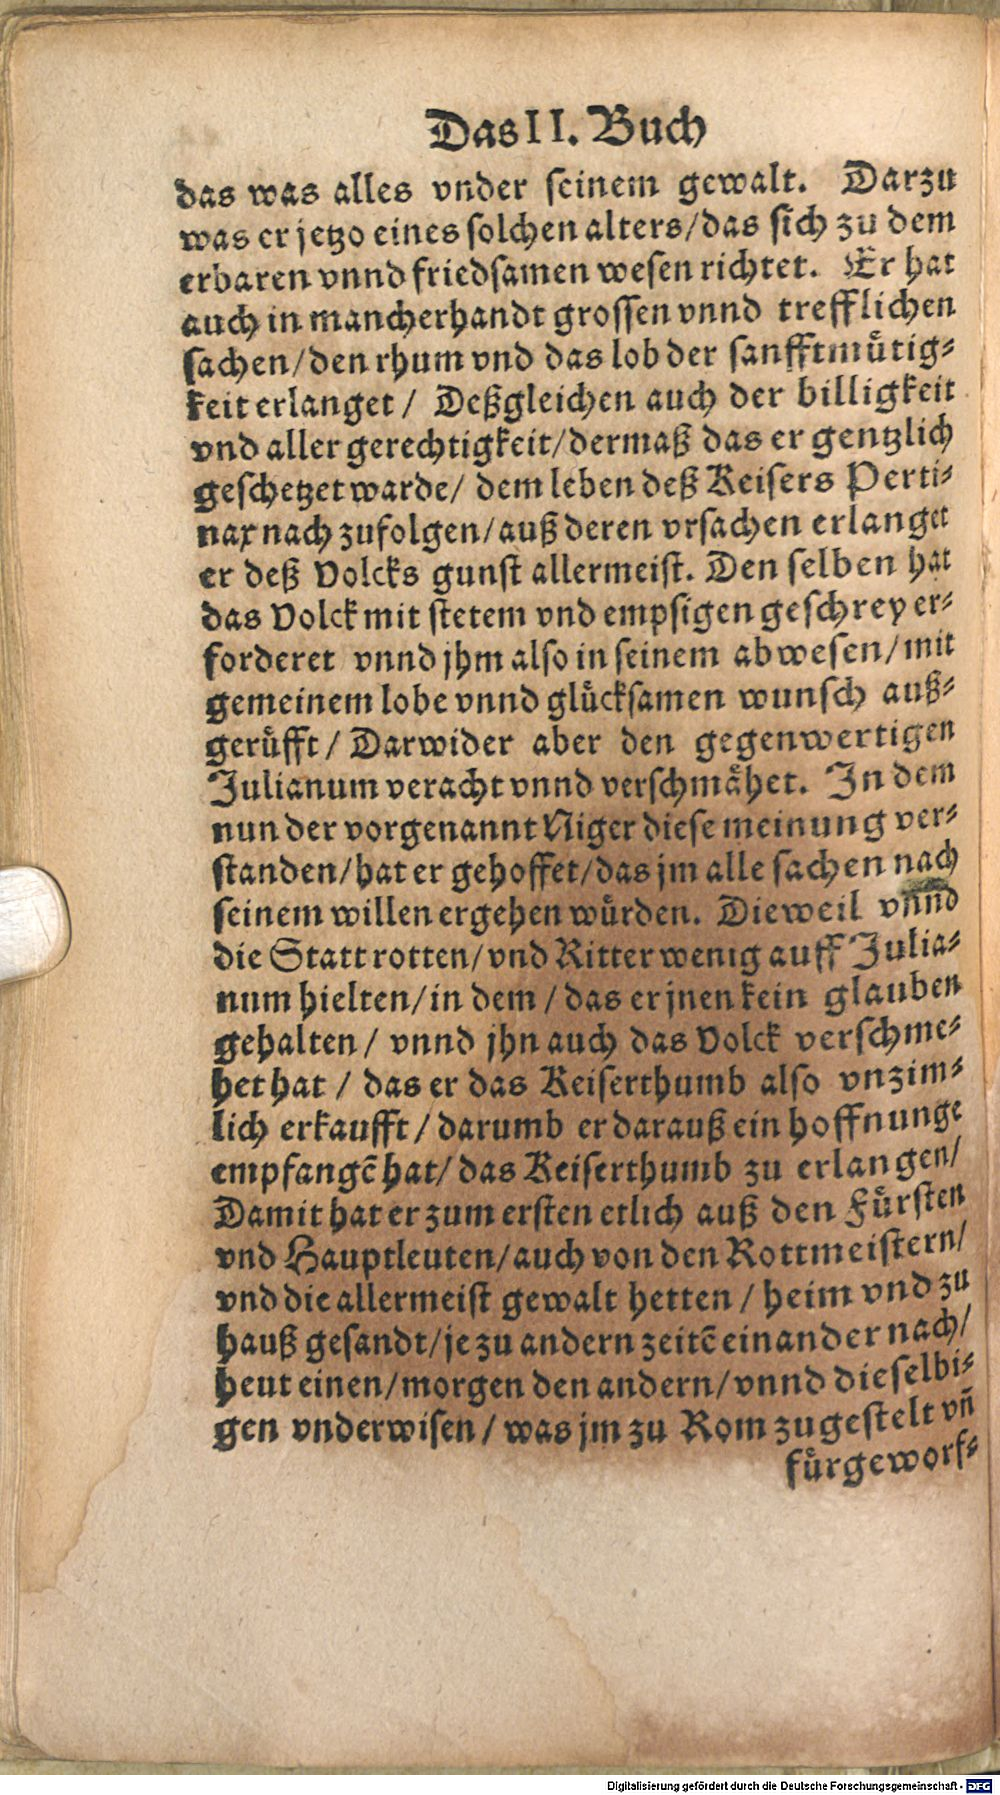 Das II. Buch
das was alles vnder seinem gewalt. Darzu
was er jetzo eines solchen alters/das sich zu dem
erbaren vnnd friedsamen wesen richtet. Er hat
auch in mancherhandt grossen vnnd trefflichen
sachen/den rhum vnd das lob der sanfftmuͤtig⸗
keit erlanget/ Deßgleichen auch der billigkeit
vnd aller gerechtigkeit/dermaß das er gentzlich
geschetzet warde/ dem leben deß Keisers Perti⸗
nax nach zufolgen/auß deren vrsachen erlanget
er deß Volcks gunst allermeist. Den selben hat
das Volck mit stetem vnd empsigen geschrey er⸗
forderet vnnd jhm also in seinem abwesen/mit
gemeinem lobe vnnd gluͤcksamen wunsch auß⸗
geruͤfft/ Darwider aber den gegenwertigen
Julianum veracht vnnd verschmaͤhet. In dem
nun der vorgenannt Niger diese meinung ver⸗
standen/hat er gehoffet/das jm alle sachen nach
seinem willen ergehen wuͤrden. Dieweil vnnd
die Statt rotten/vnd Ritter wenig auff Julia⸗
num hielten/in dem/das er jnen kein glauben
gehalten/ vnnd jhn auch das Volck verschme⸗
het hat/ das er das Keiserthumb also vnzim⸗
lich erkaufft/darumb er darauß ein hoffnunge
empfangẽ hat/das Keiserthumb zu erlangen/
Damit hat er zum ersten etlich auß den Fuͤrsten
vnd Hauptleuten/auch von den Rottmeistern/
vnd die allermeist gewalt hetten/heim vnd zu
hauß gesandt/je zu andern zeitẽ einander nach/
heut einen/morgen den andern/vnnd dieselbi⸗
gen vnderwisen/was jm zu Rom zugestelt vñ
fuͤrgeworf⸗
Digitalisierung gefördert durch die Deutsche Forschungsgemeinschaft - DFG